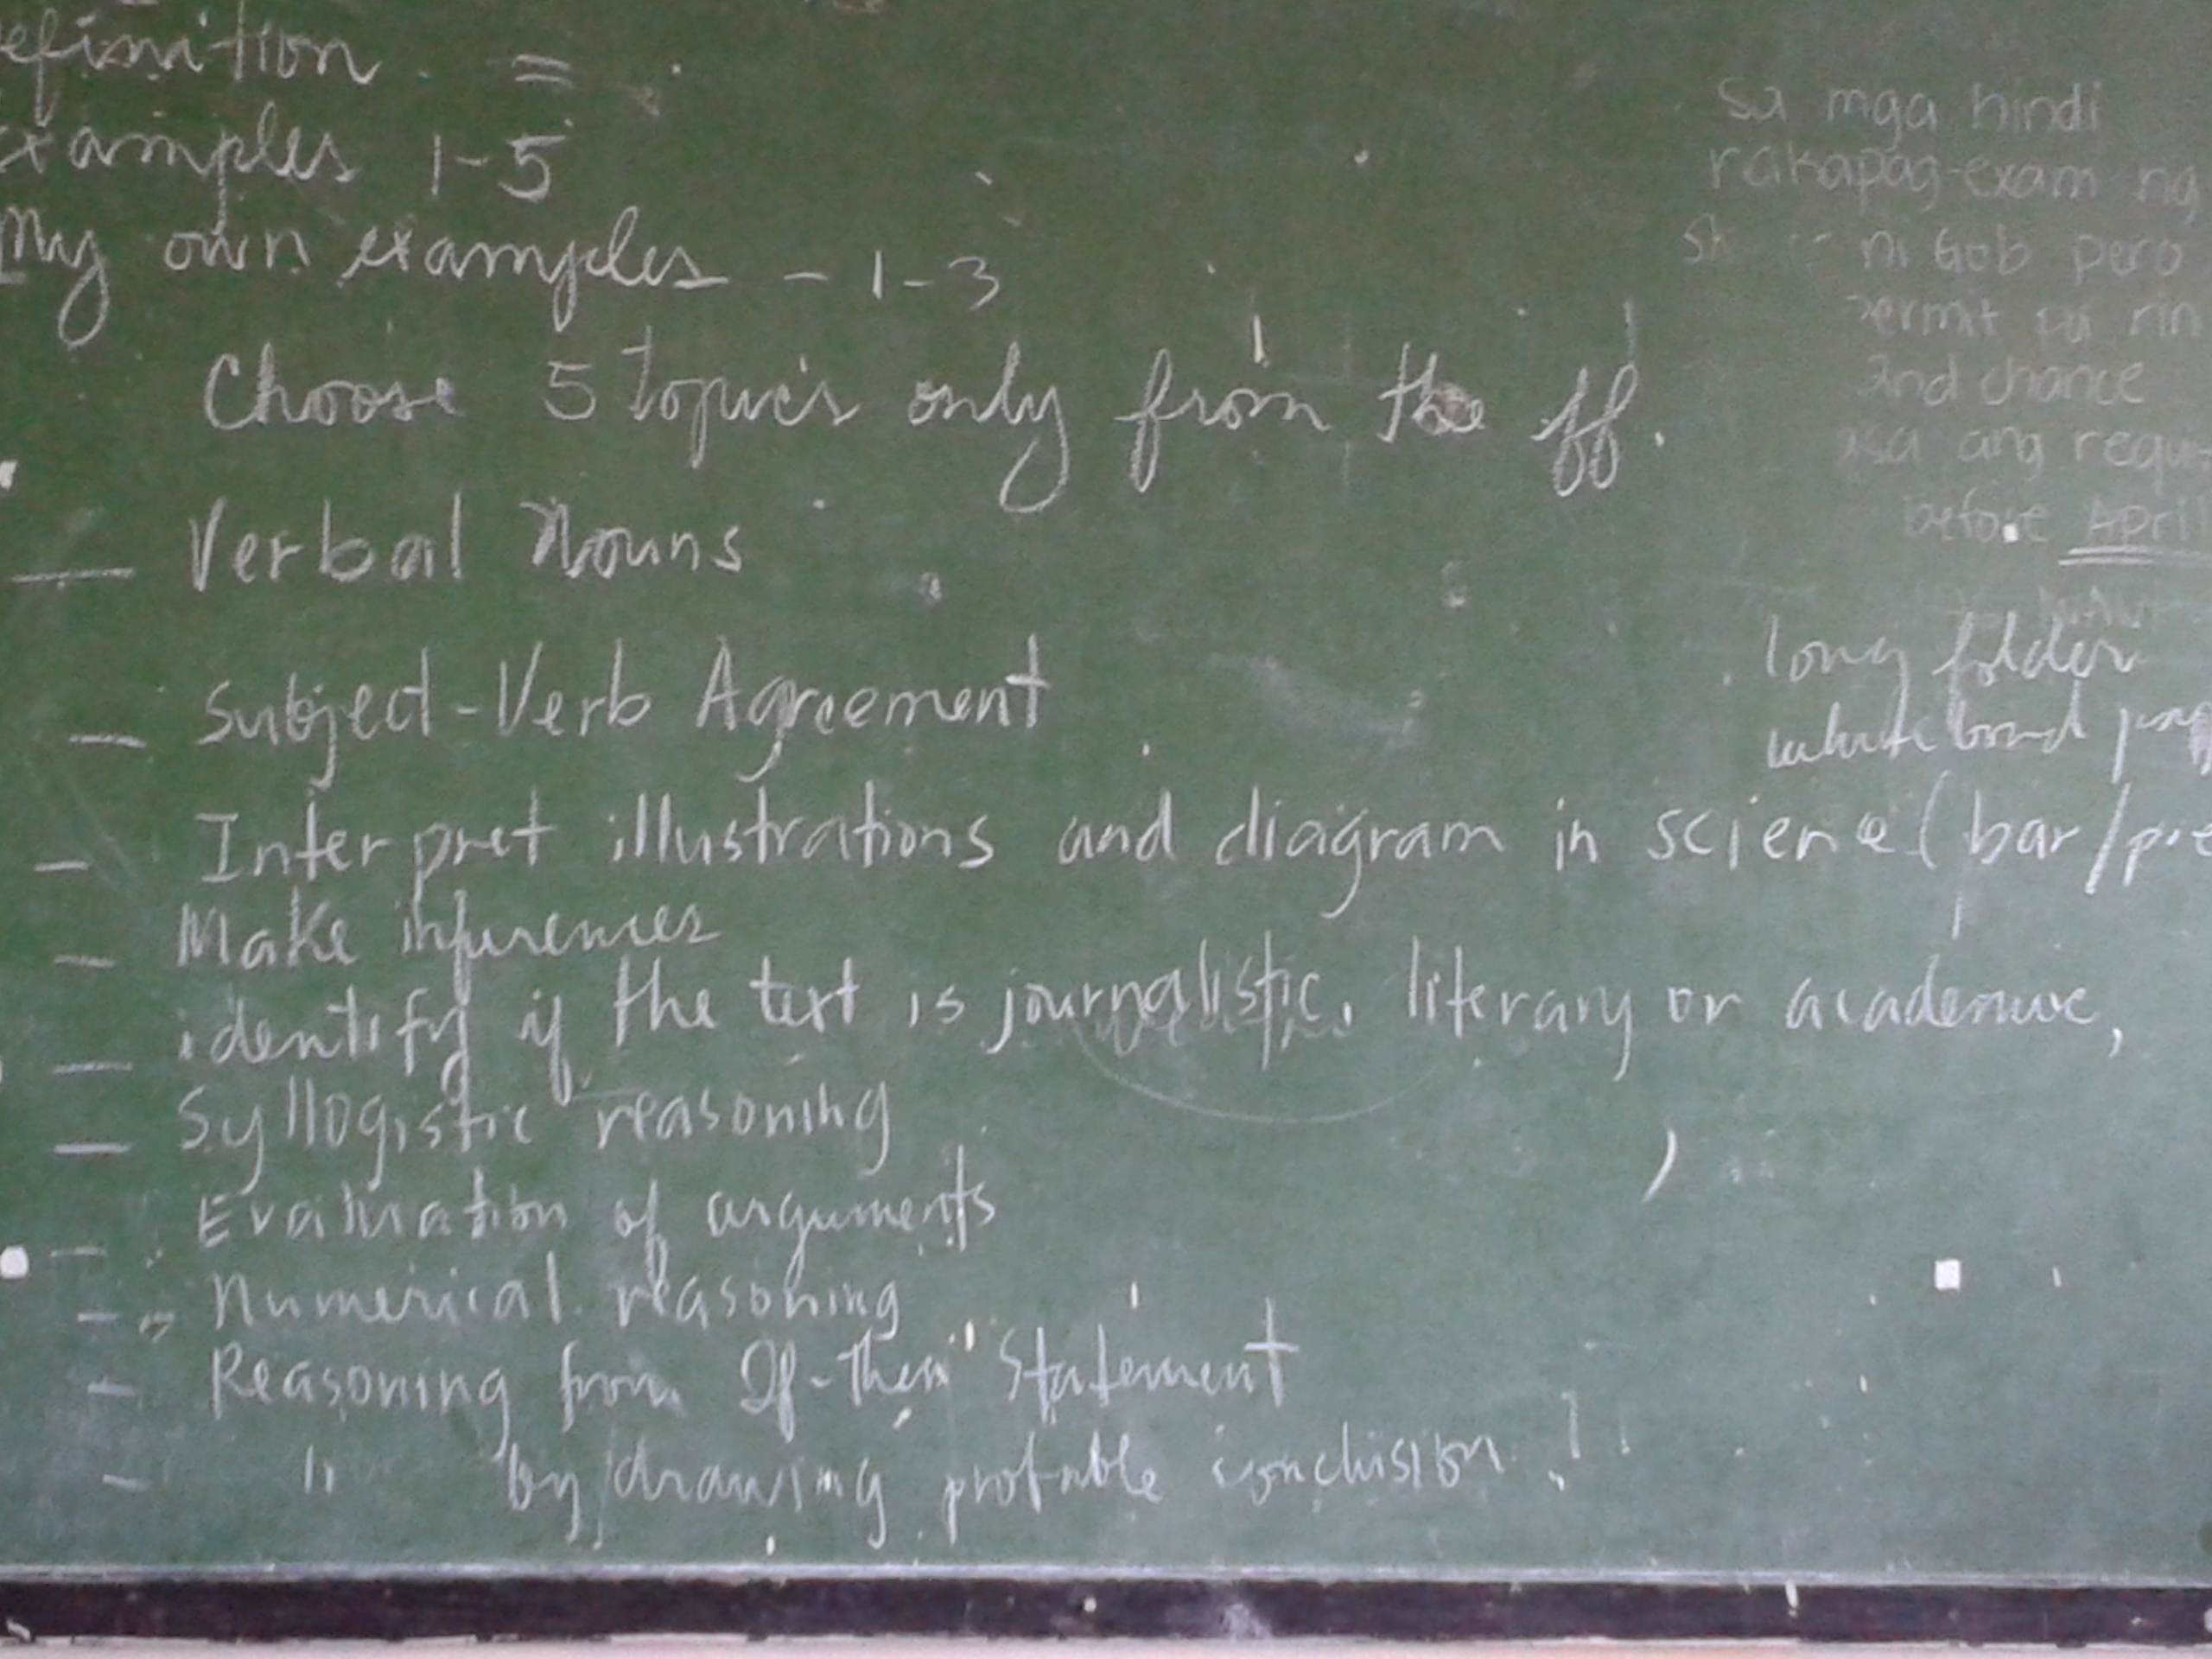 efinition =
xamples 1-5
My own examples - 1-3
Choose 5 topics only from the ff.
— Verbal Nouns
— Subject-Verb Agreement
— Interpret illustrations and diagram in science (bar/pie
— Make inferences
— identify if the text is journalistic, literary or academic,
— Syllogistic reasoning
— Evaluation of arguments
— Numerical reasoning
— Reasoning from If-then Statement
— " by drawing probable conclusion.
Sa mga hindi
nakapag-exam ng
ni Gob pero
permit pa rin
2nd chance
ang requi
before April
long folder
white bond pap